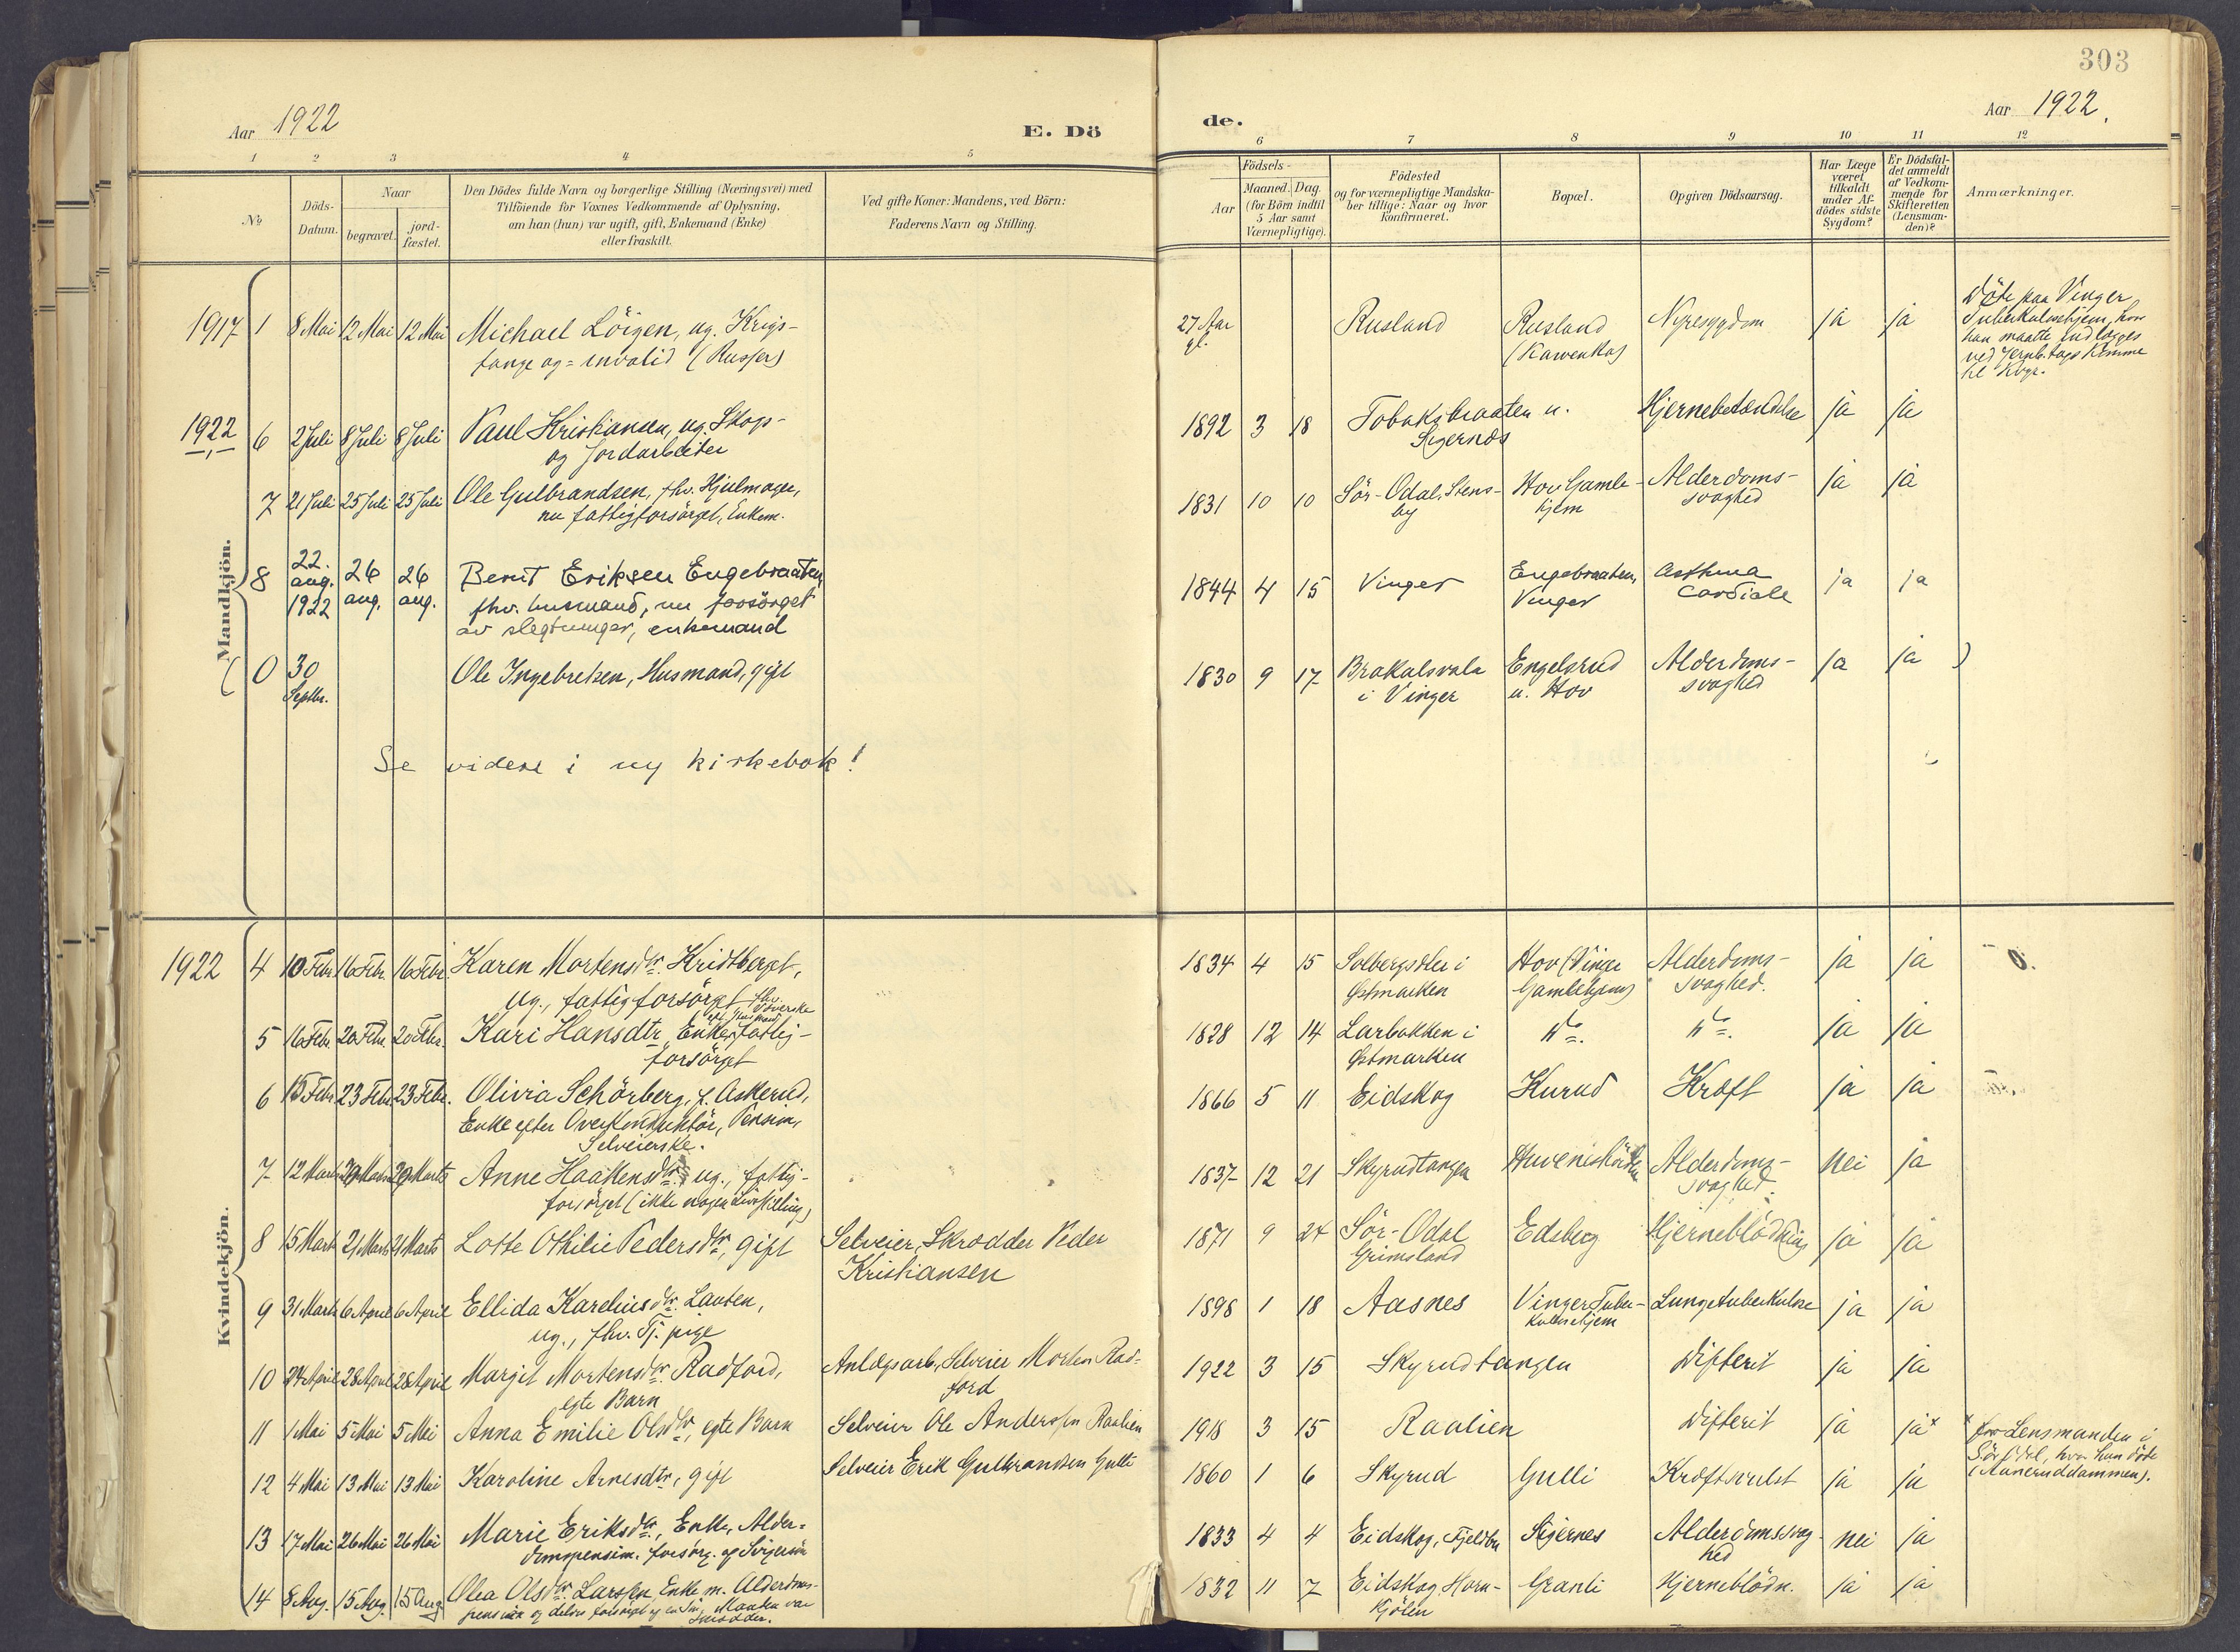 303
Aar 1922
E. Dö
de.
Aar 1922.
1 2 3 4 5 6 7 8 9 10 11 12
No
Döds-
Datum.
Naar
begravet.
jord-
fæstet.
Den Dödes fulde Navn og borgerlige Stilling (Næringsvei) med
Tilföiende for Voxnes Vedkommende af Oplysning,
om han (hun) var ugift, gift, Enkemand (Enke)
eller fraskilt.
Ved gifte Koner: Mandens, ved Börn:
Faderens Navn og Stilling.
Aar
Födsels-
Maaned. Dag.
(for Börn indtil
5 Aar samt
Værnepligtige).
Födested
og for værnepligtige Mandska-
ber tillige: Naar og hvor
konfirmeret.
Bopæl.
Opgiven Dödsaarsag.
Har Læge
været
tilkaldt
under Af-
dödes sidste
Sygdom?
Er Dödsfal-
det anmeldt
af Vedkom-
mende for
Skifteretten
(Lensman-
den)?
Anmærkninger.
Mandkjön.
1917 1 8 Mai 12 Mai 12 Mai Michael Löigen, ug. Krigs-
fange og = invalid (Russer)
27 Aar
gl.
Rusland Rusland
(Kawenka)
Nyresygdom ja ja
Döde paa Vinger
Tuberkulosehjem, hvor
han maatte indlægges
ved Jernb.togs Komme
til Kvgr.
1922 6 2 Juli 8 Juli 8 Juli Paul Kristiansen, ug. Skogs-
og Jordarbeider
1892 3 18 Tobaksbraaten u.
Sigernes
Hjernebetændelse ja ja
7 21 Juli 25 Juli 25 Juli Ole Gulbrandsen, fhv. Hjulmager,
nu fattigforsörget, Enkem.
1831 10 10 Sör-Odal, Stens-
by
Hov Gamle-
hjem
Alderdoms-
svaghed
ja ja
8 22.
aug.
1922
26
aug.
26
aug.
Bernt Eriksen Engebraaten,
fhv. husmand, nu forsörget
av slegtninger, enkemand
1844 4 15 Vinger Engebraaten,
Vinger
Asthma
cardiale
ja ja
( 0 30
Septbr.
Ole Ingebretsen, Husmand, gift
1830 9 17 Brakalsvala
i Vinger
Engelsrud
u. Hov
Alderdoms-
svaghed
ja ja )
Se videre i ny kirkebok!
Kvindekjön.
1922 4 10 Febr. 16 Febr. 16 Febr. Karen Mortensdtr. Kridtberget,
ug., fattigforsörget fhv.
Væverske
1834 4 15 Solbergsæter i
Østmarken
Hov (Vinger
Gamlehjem)
Alderdoms-
svaghed.
ja ja 0.
5 16 Febr. 20 Febr. 20 Febr. Kari Hansdtr. Enke eft. Husmand, fattig-
forsörget
1828 12 14 Larbakken i
Østmarken
ja ja
6 15 Febr. 23 Febr. 23 Febr. Olivia Schörberg, f. Askerud,
Enke efter Overkonduktör, Pension,
Selveierske.
1866 5 11 Eidskog Kurud Kræft ja ja
7 12 Marts 29 Marts 29 Marts Anne Haakensdtr. ug., fattig-
forsörget (ikke nogen Livsstilling)
1837 12 21 Skyrudtangen Alderdoms-
svaghed.
nei ja
8 15 Marts 21 Marts 21 Marts Lotte Othilie Pedersdtr., gift Selveier, Skrædder Peder
Kristiansen
1871 9 24 Sör-Odal
Grimsland
Edsberg Hjerneblödning ja ja
9 31 Marts 6 April 6 April Ellida Kareliusdtr. Lauten,
ug., fhv. Tj. pige
1898 1 18 Aasnes Vinger Tuber-
kulosehjem
Lungetuberkulose ja ja
10 24 April 28 April 28 April Margit Mortensdtr. Radford,
egte Barn
Anlægsarb., Selveier Morten Rad-
ford
1922 3 15 Skyrudtangen Difterit ja ja
11 1 Mai 5 Mai 5 Mai Anna Emilie Olsdtr., egte Barn Selveier Ole Anderssen Raalien
1918 3 15 Raalien Difterit ja ja x
x for Lensmanden i
Sör Odal, hvor hun döde
(Aaneruddammen).
12 4 Mai 13 Mai 13 Mai Karoline Arnesdtr., gift Selveier Erik Gulbrandsen Gulli
1860 1 6 Skyrud Gulli Kræftsvulst ja ja
13 17 Mai 26 Mai 26 Mai Marie Eriksdtr., Enke, Alder-
domspension. forsörg. af Svigersön
1833 4 4 Eidskog, Fjeldbu Sigernes Alderdomssvag-
hed
nei ja
14 8 Aug. 15 Aug. 15 Aug Olea Olsdtr. Larssen, Enke m. Alderdoms-
pension og delvis forsörget af en Sön, Manden var
Skrædder.
1832 11 7 Eidskog, Horn-
kjölen
Granli Hjerneblödn. ja ja